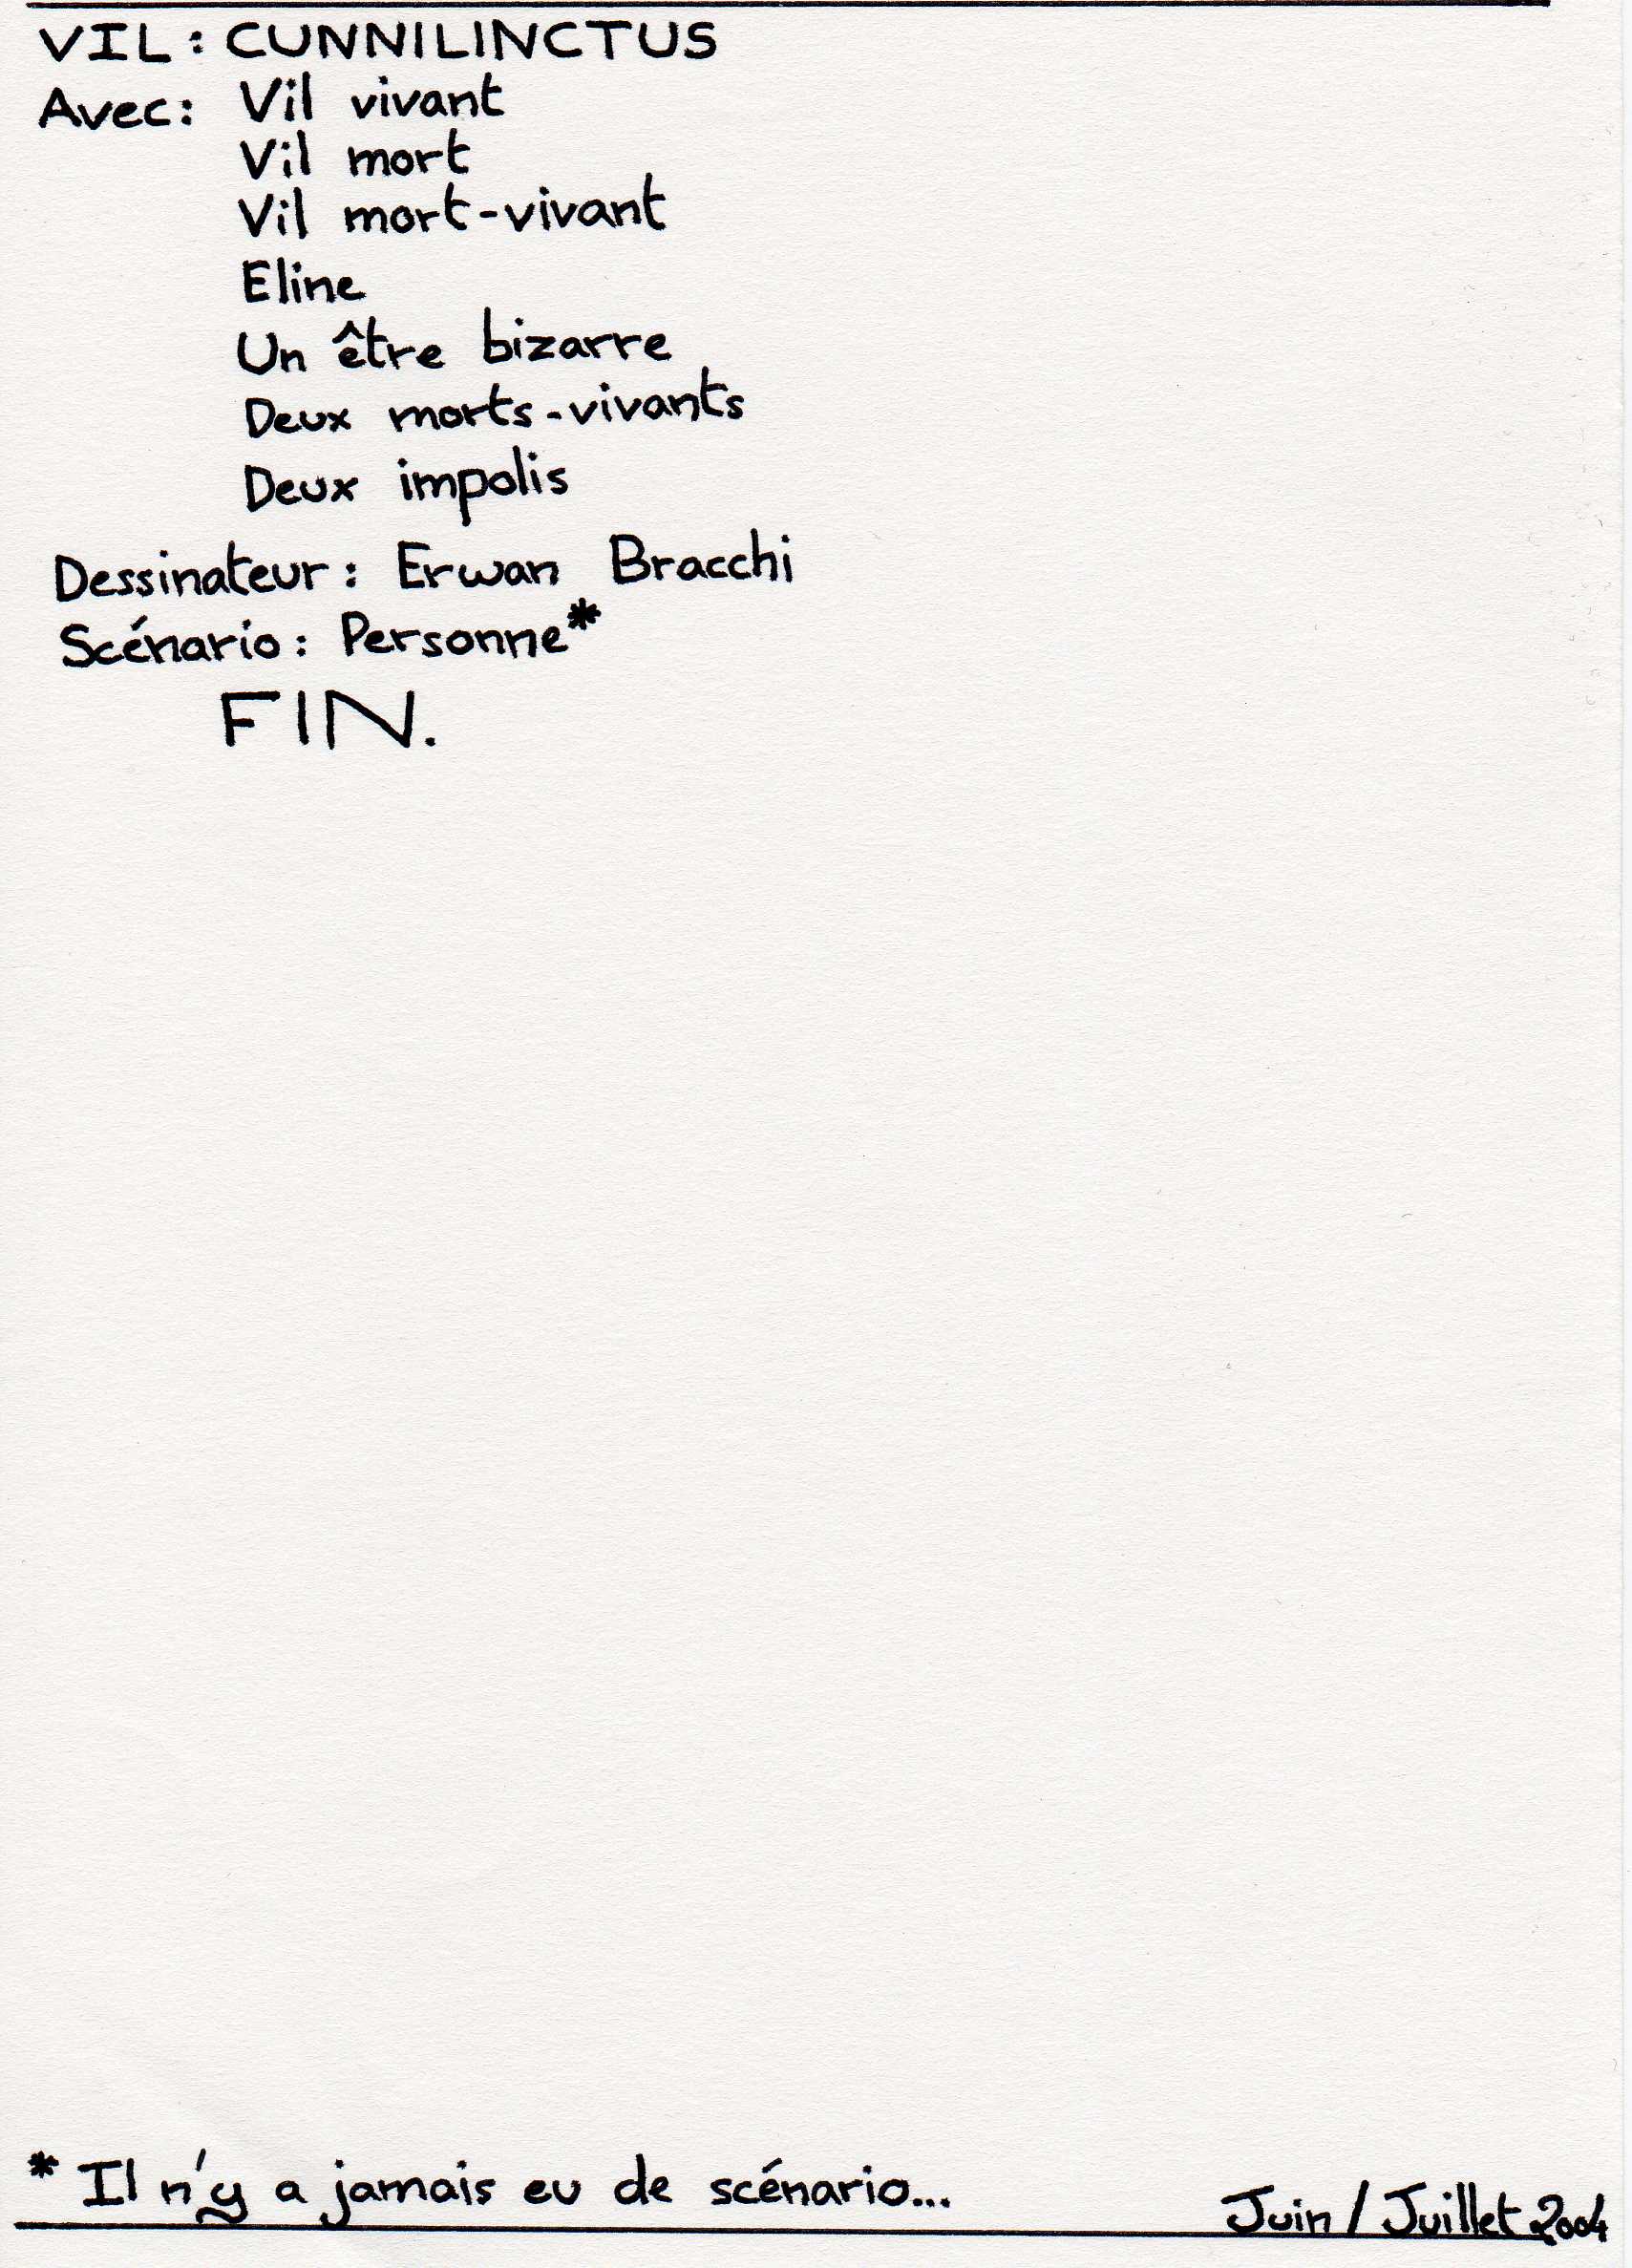 VIL : CUNNILINCTUS
Avec : Vil vivant
Vil mort
Vil mort-vivant
Eline
Un être bizarre
Deux morts-vivants
Deux impolis
Dessinateur : Erwan Bracchi
Scénario : Personne*
FIN.
* Il n'y a jamais eu de scénario...
Juin / Juillet 2004